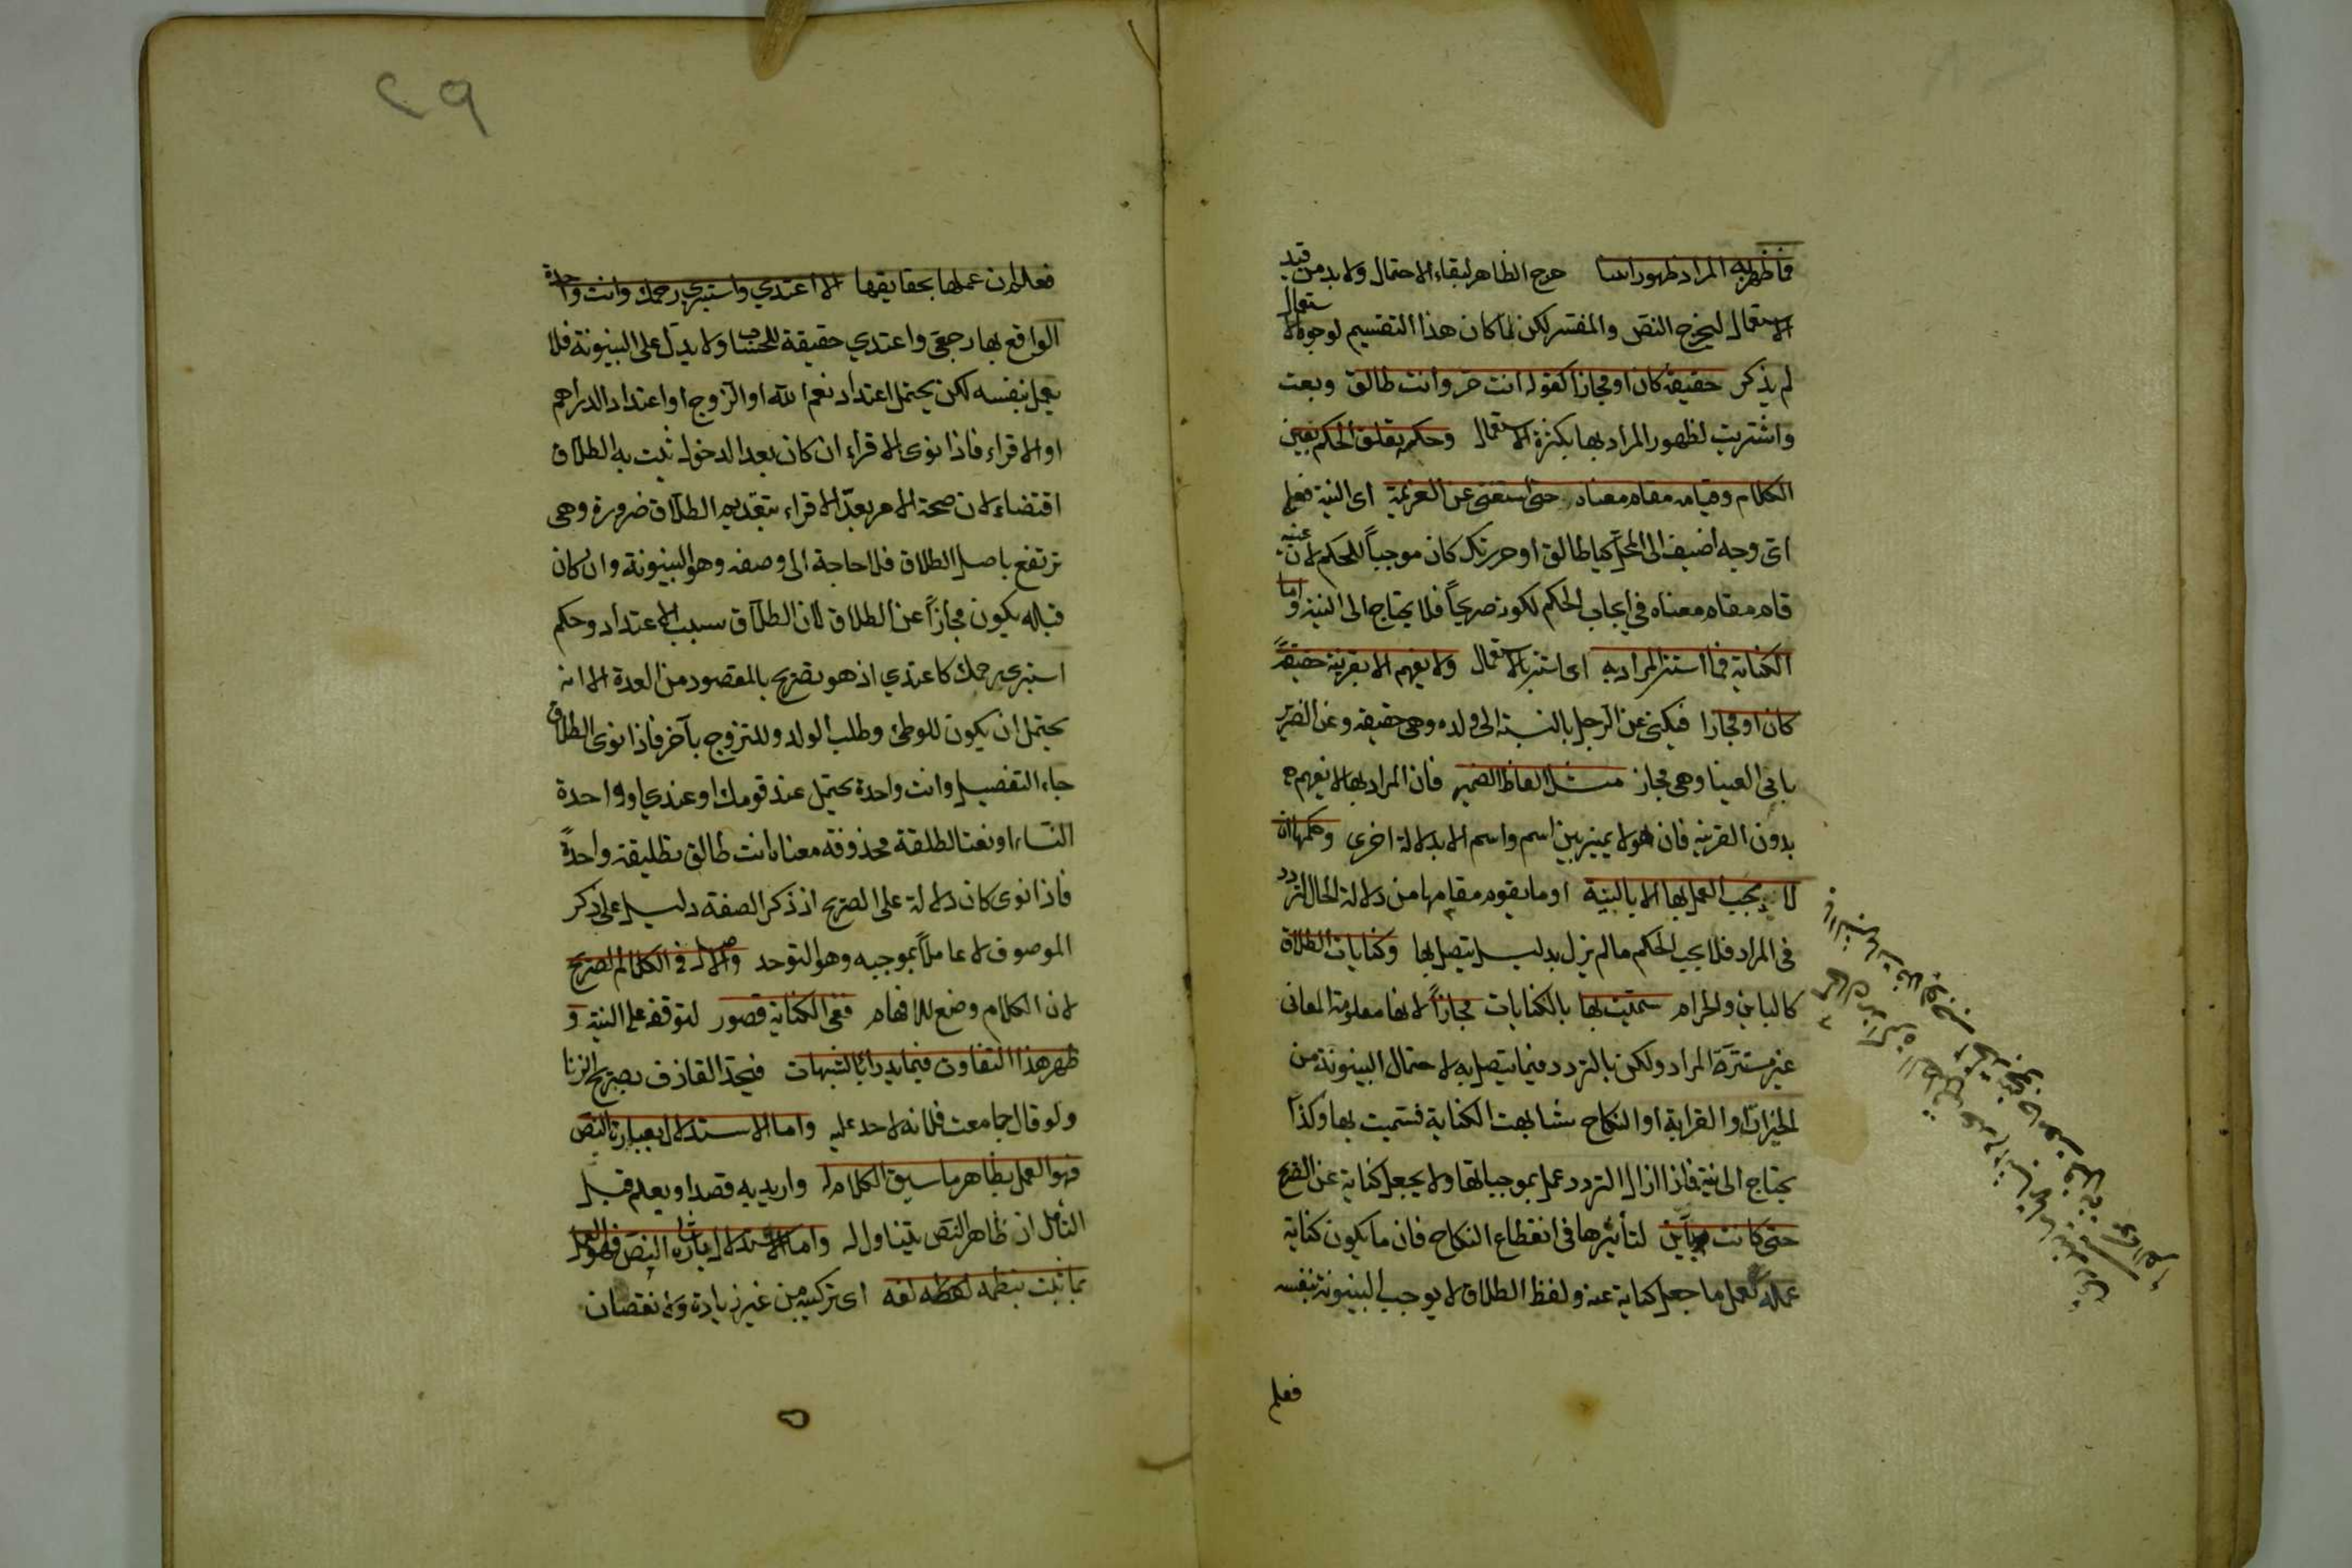 فما ظهر به المراد ظهورا بينا خرج الظاهر لبقاء الاحتمال ولا بد من قيد
الاستعمال ليخرج النص والمفسر لكن لما كان هذا التقسيم لوجوه الاستعمال
لم يذكر حقيقة كان او مجازا كقوله انت حر وانت طالق وبعت
واشتريت لظهور المراد بها بكثرة الاستعمال وحكمه تعلق الحكم بعين
الكلام وقيامه مقام معناه حتى استغنى عن العزيمة اى النية فعلى
اى وجه اضيف الى المحل كيا طالق او حررتك كان موجباً للحكم لان عينه
قام مقام معناه في ايجاب الحكم لكونه صريحاً فلا يحتاج الى النية واما
الكناية فما استتر المراد به اى استتر بالاستعمال ولا يفهم الا بقرينة حقيقةً
كان او مجازا فيكنى عن الرجل بالنسبة الى ولده وهى حقيقة وعن الضرير
بابى العينا وهى مجاز مثل الفاظ الضمير فان المراد بها لا يفهم
بدون القرينة فان هو لا يميز بين اسم واسم الا بدلالة اخرى وحكمها ان
لا يجب العمل بها الا بالنية او ما يقوم مقامها من دلالة الحال لتردد
فى المراد فلا يجب الحكم ما لم يزل بدليل يتصل بها وكنايات الطلاق
كالباين والحرام سميت بها بالكنايات مجازاً لانها معلومة المعانى
غير مستترة المراد ولكن بالتردد فيما يتصل به لاحتمال البينونة من
الخيرات او القرابة او النكاح شابهت الكناية فسميت بها ولذا
يحتاج الى نية فاذا ازال التردد عمل بموجباتها ولا يجعل كناية عن الصريح
حتى كانت بواين لتأثيرها فى انقطاع النكاح فان ما يكون كناية
عمله كعمل ما جعل كناية عنه ولفظ الطلاق لا يوجب البينونة بنفسه
فعلم
٢٩
فعلم ان عملها بحقايقها الا اعتدي واستبري رحمك وانت واحدة
الواقع بها رجعى واعتدي حقيقة للحساب ولا يدل على البينونة فلا
يعمل بنفسه لكن يحتمل اعتداد نعم الله او الزوج او اعتداد الدراهم
او الاقراء فاذا نوى الاقراء ان كان بعد الدخول ثبت به الطلاق
اقتضاء لان صحة الامر بعدّ الاقراء بتقديم الطلاق ضرورة وهى
ترتفع باصل الطلاق فلا حاجة الى وصفه وهو البينونة وان كان
قبله يكون مجازاً عن الطلاق لان الطلاق سبب الاعتداد وحكم
استبرى رحمك كاعتدي اذ هو تصريح بالمقصود من العدة الا انه
يحتمل ان يكون للوطئ وطلب الولد وللتزوج بآخر فاذا نوى الطلاق
جاء التفصيل وانت واحدة يحتمل عند قومك او عندي او واحدة
النساء او نعتا لطلقة محذوفة معناه انت طالق تطليقة واحدةً
فاذا نوى كان دلالة على الصريح اذ ذكر الصفة دليل على ذكر
الموصوف لا عاملاً بموجبه وهو التوحد والاصل في الكلام الصريح
لان الكلام وضع للافهام ففى الكناية قصور لتوقفه على النية و
ظهر هذا التفاوت فيما يدرأ بالشبهات فيحد القاذف بصريح الزنا
ولو قال جامعت فلانه لا حد عليه واما الاستدلال بعبارة النص
فهو العمل بظاهر ما سيق الكلام له واريد به قصدا ويعلم قبل
التأمل ان ظاهر النص يتناول له واما الاستدلال باشارة النص فهو العمل
بما ثبت بنظمه لغة اى بتركيبه من غير زيادة ولا نقصان